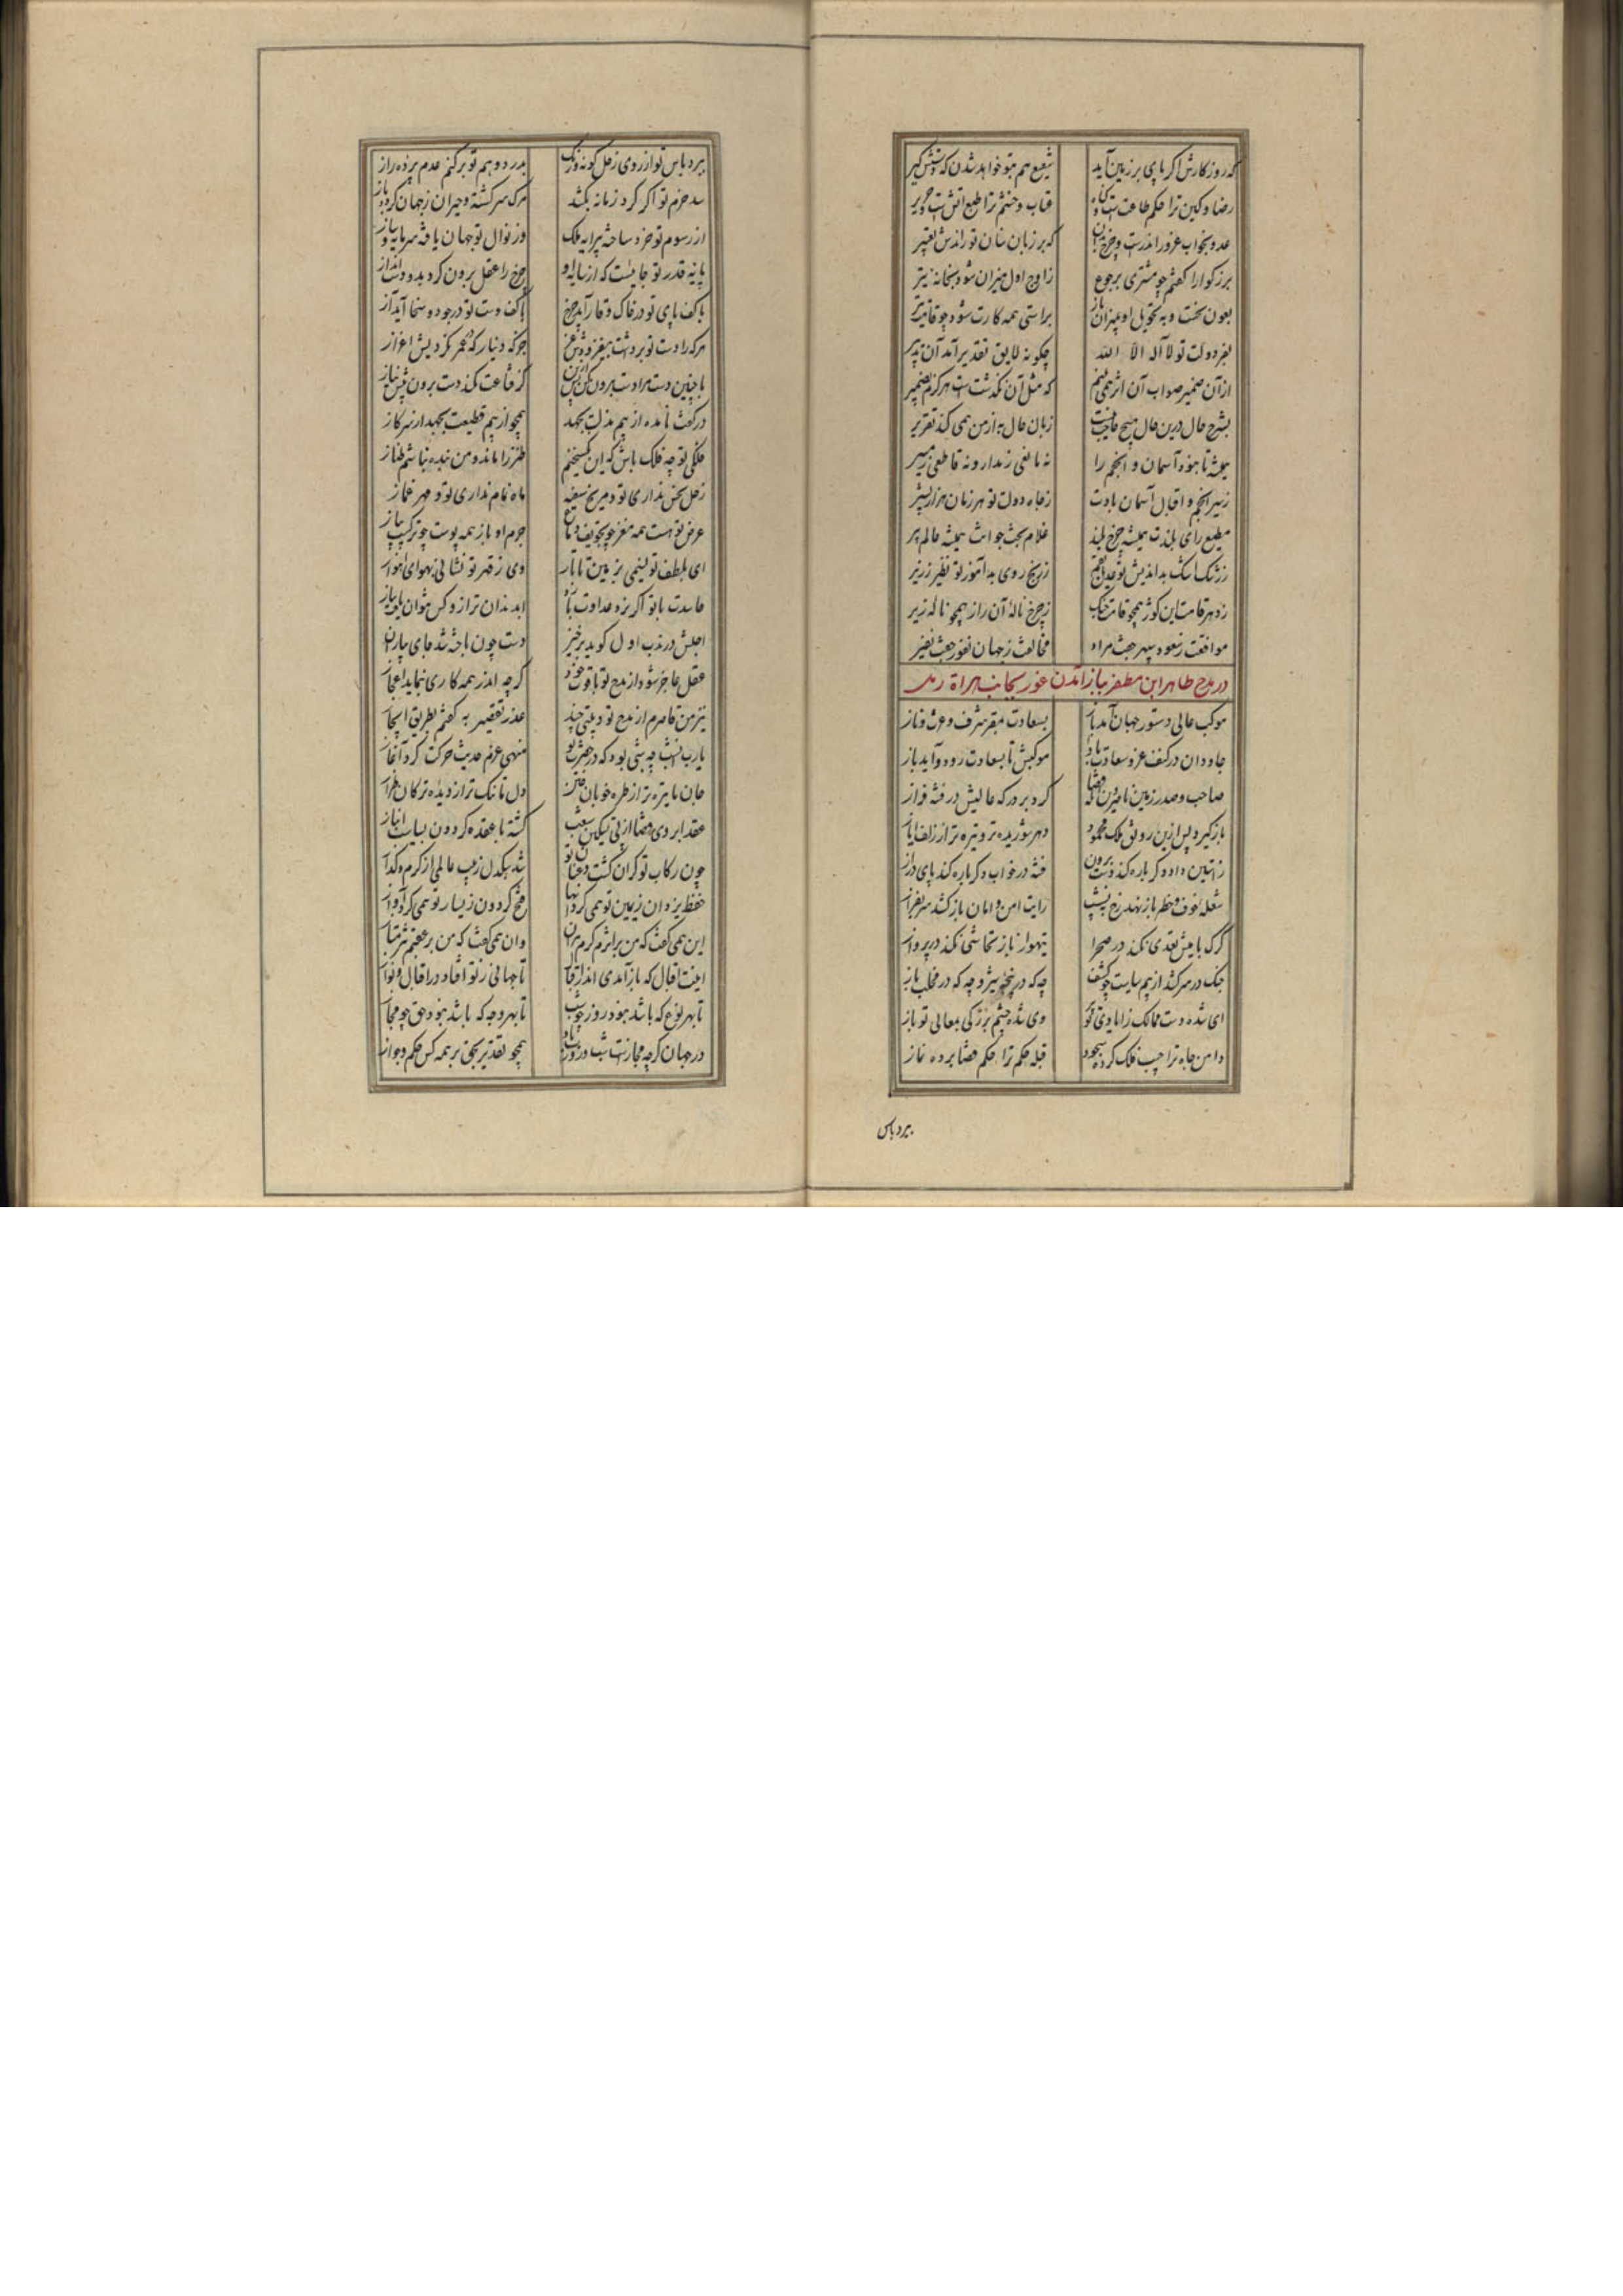 که روز کارش اگر پای بر زمین آید شفیع هم بتو خواهد شدن که دستش گیر
رضا و کین ترا حکم طاعت است و گناه عتاب و خشم ترا طبع آتش است و حریر
عدو بخواب غرور اندرست و چرخ بر آن که بر زبان سنان تو راندش تعبیر
بزرگوارا گفتم چو مشتری برجوع ز اوج اول میزان شود بخانه تیر
بعون بخت و به تحویل او بمیزان باز براستی همه کارت شود چو قامت تیر
بفر دولت تو لا اله الا الله چگونه لایق تقدیر آمد آن تدبیر
از آن ضمیر صواب آن اثر همی بینم که مثل آن نگذشتست هرگزم بضمیر
بشرح حال درین حال هیچ حاجت نیست زبان حال به از من همی کند تقریر
همیشه تا نبود آسمان و انجم را نه مانعی ز مدار و نه قاطعی ز مسیر
ز سیر انجم و اقبال آسمان بادت ز جاه و دولت تو هر زمان هزار بشیر
مطیع رای بلندت همیشه چرخ بلند غلام بخت جوانت همیشه عالم پیر
ز رشک اشک بداندیش تو عدیل بقم ز رنج روی بدآموز تو نظیر زریر
ز دهر قامت این کوژ همچو قامت چنگ ز چرخ نالهٔ آن زار همچو ناله زیر
موافقت ز سعود سپهر جفت مراد مخالفت ز جهان نفور جفت نفیر
در مدح طاهر ابن مظفر باز آمدن غور بجانب هراة رمل
موکب عالی دستور جهان آمد باز بسعادت بمقر شرف و عزت و ناز
جاودان در کنف عز و سعادت بادا موکبش تا بسعادت رود و آید باز
صاحب و صدر زمین ناصر دین آنکه قضا کرد بر درگه عالیش در فتنه فراز
باز گیرد پس ازین رونق ملک محمود دهر شوریده‌تر و تیره‌تر از زلف ایاز
ز آستین داد دگر باره کند دست برون فتنه در خواب دگر باره کند پای دراز
شعله خوف و خطر باز نهد رخ به نشیب رایت امن و امان باز کشد سر بفراز
گرگ با میش تعدی نکند در صحرا تیهو از باز تحاشی نکند در پرواز
چنگ در سر کشد از بیم سیاست چو کشف چه که در پنجه شیر و چه که در مخلب باز
ای شده دست ممالک ز ایادی تو پر وی شده چشم بزرگی بمعالی تو باز
دامن جاه ترا جیب فلک کرده سجود قبله حکم ترا حکم قضا برده نماز
ببرد باس
ببرد باس تو از روی زحل گونه و رنگ بدرد وهم تو بر کتم عدم پرده راز
سد حزم تو اگر گرد زمانه بکشد مرگ سرگشته و حیران ز جهان گردد باز
از رسوم تو خرد ساخته پیرایه ملک وز نوال تو جهان یافته سرمایه و ساز
پایه قدر تو جاییست که از سایه او چرخ را عقل برون کرد بدو دست انداز
با کف پای تو در خاک وقار آید چرخ با کف دست تو در جود و سخا آید آز
هر که را دست تو برداشت بیفزودش عز جز که دینار که در عمر نکردیش اعزاز
با چنین دست مرا دست برون کن پس ازین گر قناعت نکند دست برون پیش نیاز
در کفت نامده از بیم مذلت بجهد همچو از بیم قطیعت بجهد از سر گاز
ملکی تو چه فلک باش که این گستاخیم طنز را ماند و من بنده نباشم طناز
زحل نحس نداری تو و مریخ سفیه ماه نمام نداری تو و مهر غماز
عرض تو هست همه مغز چو تجویف دماغ جرم او باز همه پوست چو ترکیب پیاز
ای بلطف تو نسیمی بزمین تاتار وی ز قهر تو نشانی بهوای اهواز
حاسدت با تو اگر نرد عداوت بازد ابد بدان تر ازو کس نتوان یافت بباز
اجلش در ندب اول گوید برخیز دست چون باخته شد جای بیاران پرداز
عقل عاجز شود از مدح تو با قوت خود گرچه اندر همه کاری بنماید اعجاز
نیز من قاصرم از مدح تو و بیتی چند عذر تقصیر به گفتم بطریق ایجاز
یارب آن شب چه شبی بود که در حضرت تو منهی عزم حدیث حرکت کرد آغاز
جان ما تیره‌تر از طره خوبان ختن دل ما تنگ‌تر از دیده ترکان طراز
عقد ابروی قضا از پی تسکین شغب گشته با عقده گردون بسیاست انباز
چون رکاب تو گران گشت و عنان تو شد بیکدل ز پیت عالمی از گرم و گداز
حفظ یزدان ز یمین تو همی کرد انها فتح گردون ز یسار تو همی کرد آواز
این همی گفت که من بر اثرم گرم بران وان همی گفت که من بر عقبم نیز بتاز
اینت اقبال که باز آمدی اندر اقبال تا جهانی ز تو افتاد در اقبال و نواز
تا بهر نوع که باشد نبود روز چو شب تا بهر وجه که باشد نبود حق چو مجاز
در جهان گرچه مجازست شب و روزت باد همچو تقدیر بحق بر همه کس حکم و جواز